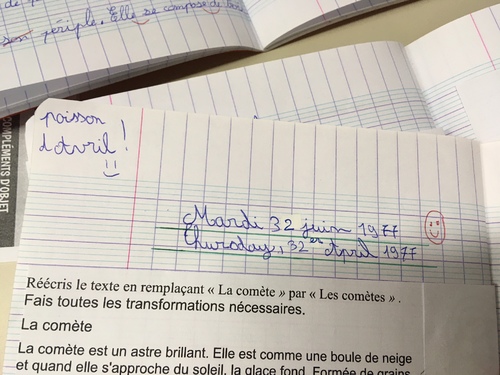 son périple. Elle se compose de
COMPLÉMENTS D'OBJET
poisson
d'Avril !
Mardi 32 juin 1977
Thursday, 32er April 1977
Réécris le texte en remplaçant « La comète » par « Les comètes » .
Fais toutes les transformations nécessaires.
La comète
La comète est un astre brillant. Elle est comme une boule de neige
et quand elle s'approche du soleil, la glace fond. Formée de grains